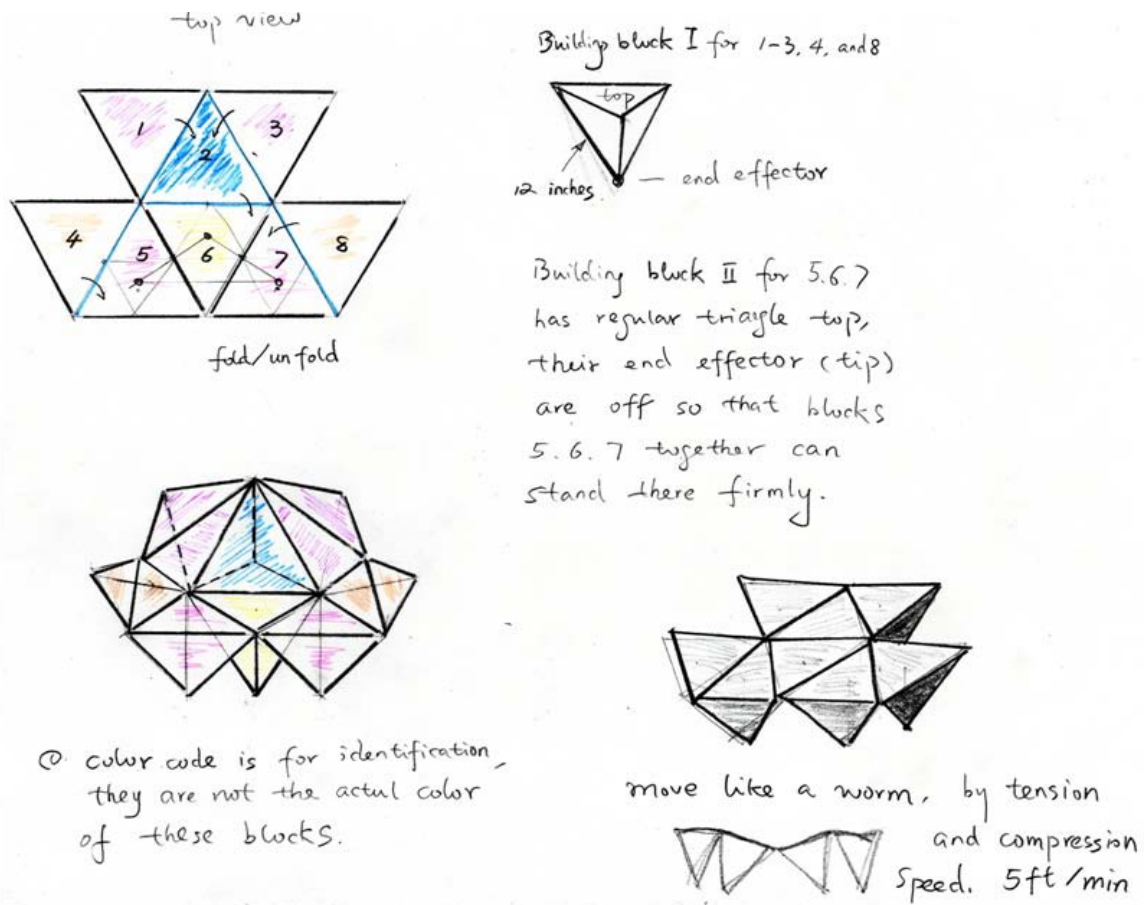 top view
1
3
2
4
5
6
7
8
fold/unfold
Building block I for 1-3, 4, and 8
top
12 inches
end effector
Building block II for 5.6.7
has regular triagle top,
their end effector (tip)
are off so that blocks
5.6.7 together can
stand there firmly.
color code is for identification,
they are not the actul color
of these blocks.
move like a worm, by tension
and compression
Speed. 5ft/min